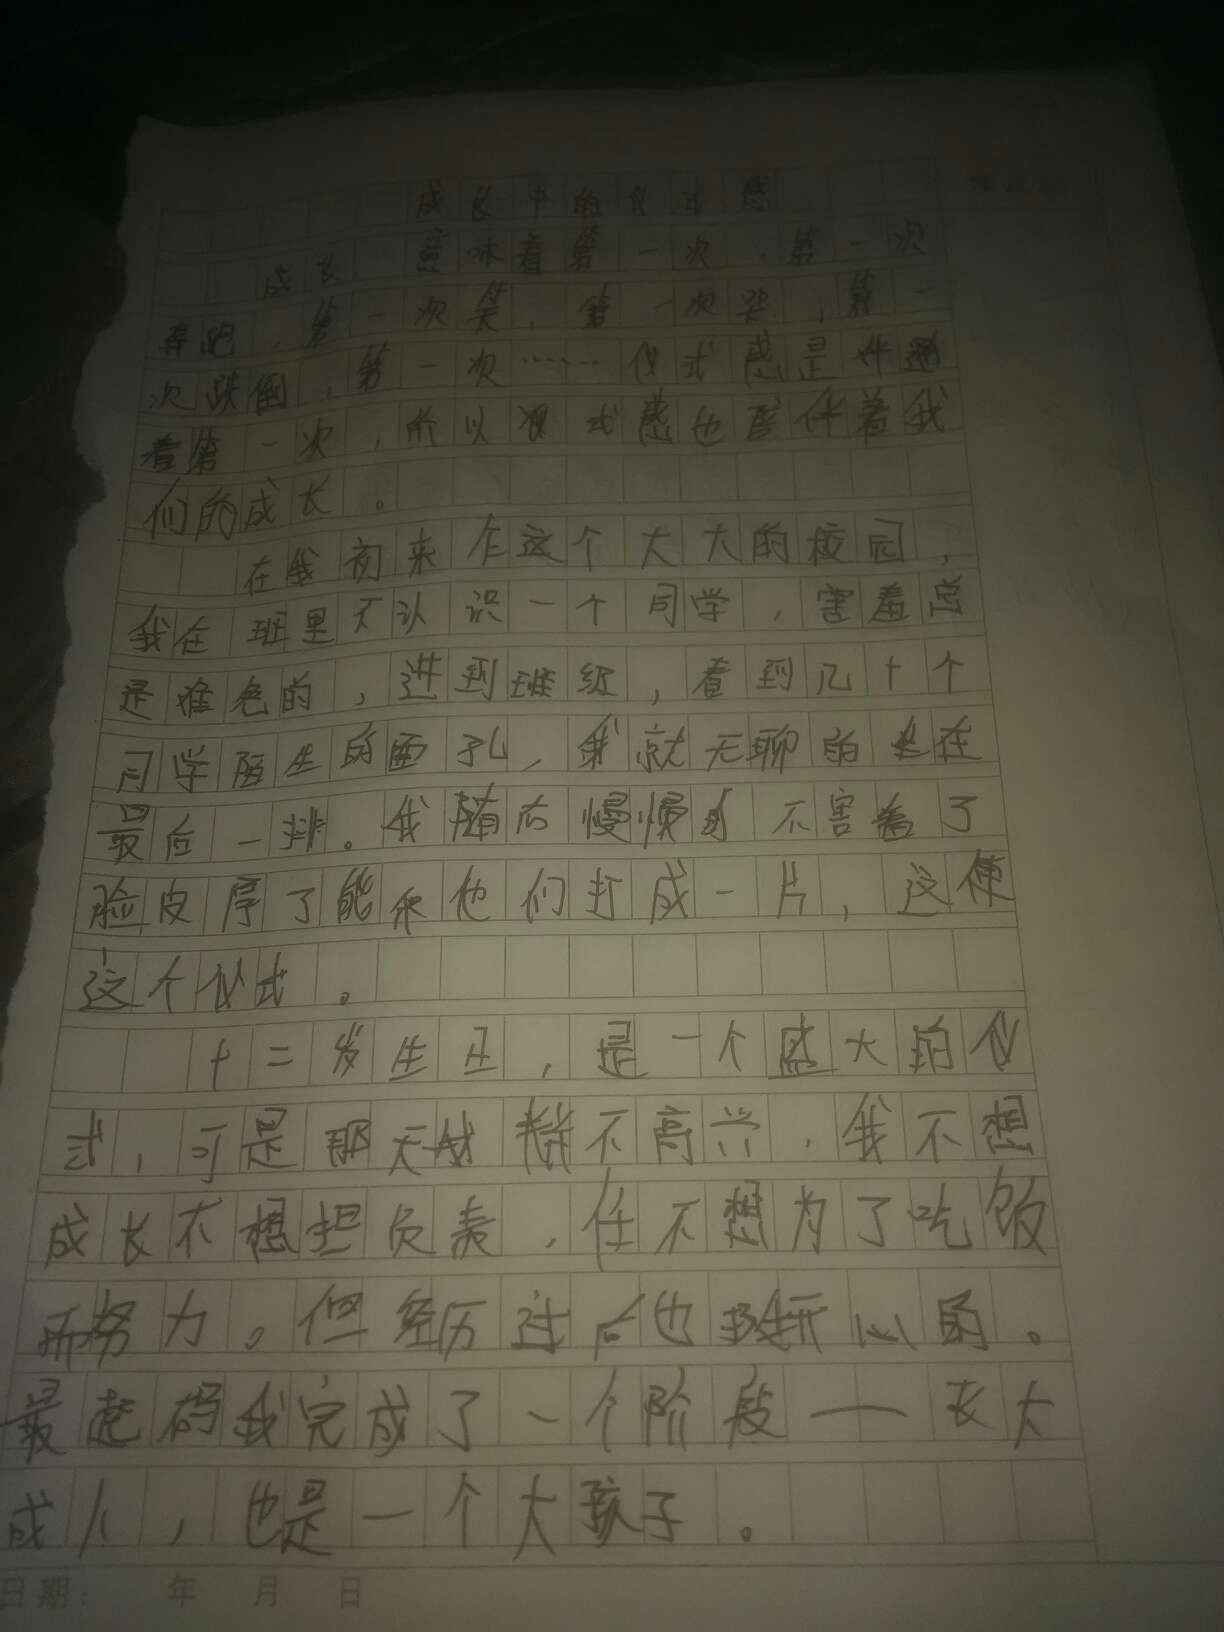 成长中的仪式感
成长，意味着第一次，第一次
奔跑，第一次笑，第一次哭，第一
次跌倒，第一次……仪式感是伴随
着第一次，所以仪式感也陪伴着我
们的成长。
在我初来乍这个大大的校园，
我在班里不认识一个同学，害羞总
是难免的，进到班级，看到几十个
同学陌生的面孔，我就无聊的坐在
最后一排。我随后慢慢的不害羞了
脸皮厚了能和他们打成一片，这便
这个仪式。
十二岁生日，是一个盛大的仪
式，可是那天我不高兴，我不想
成长不想担负责，任不想为了吃饭
而努力。但经历过后也挺开心的。
最起码我完成了一个阶段——长大
成人，也是一个大孩子。
日期： 年 月 日